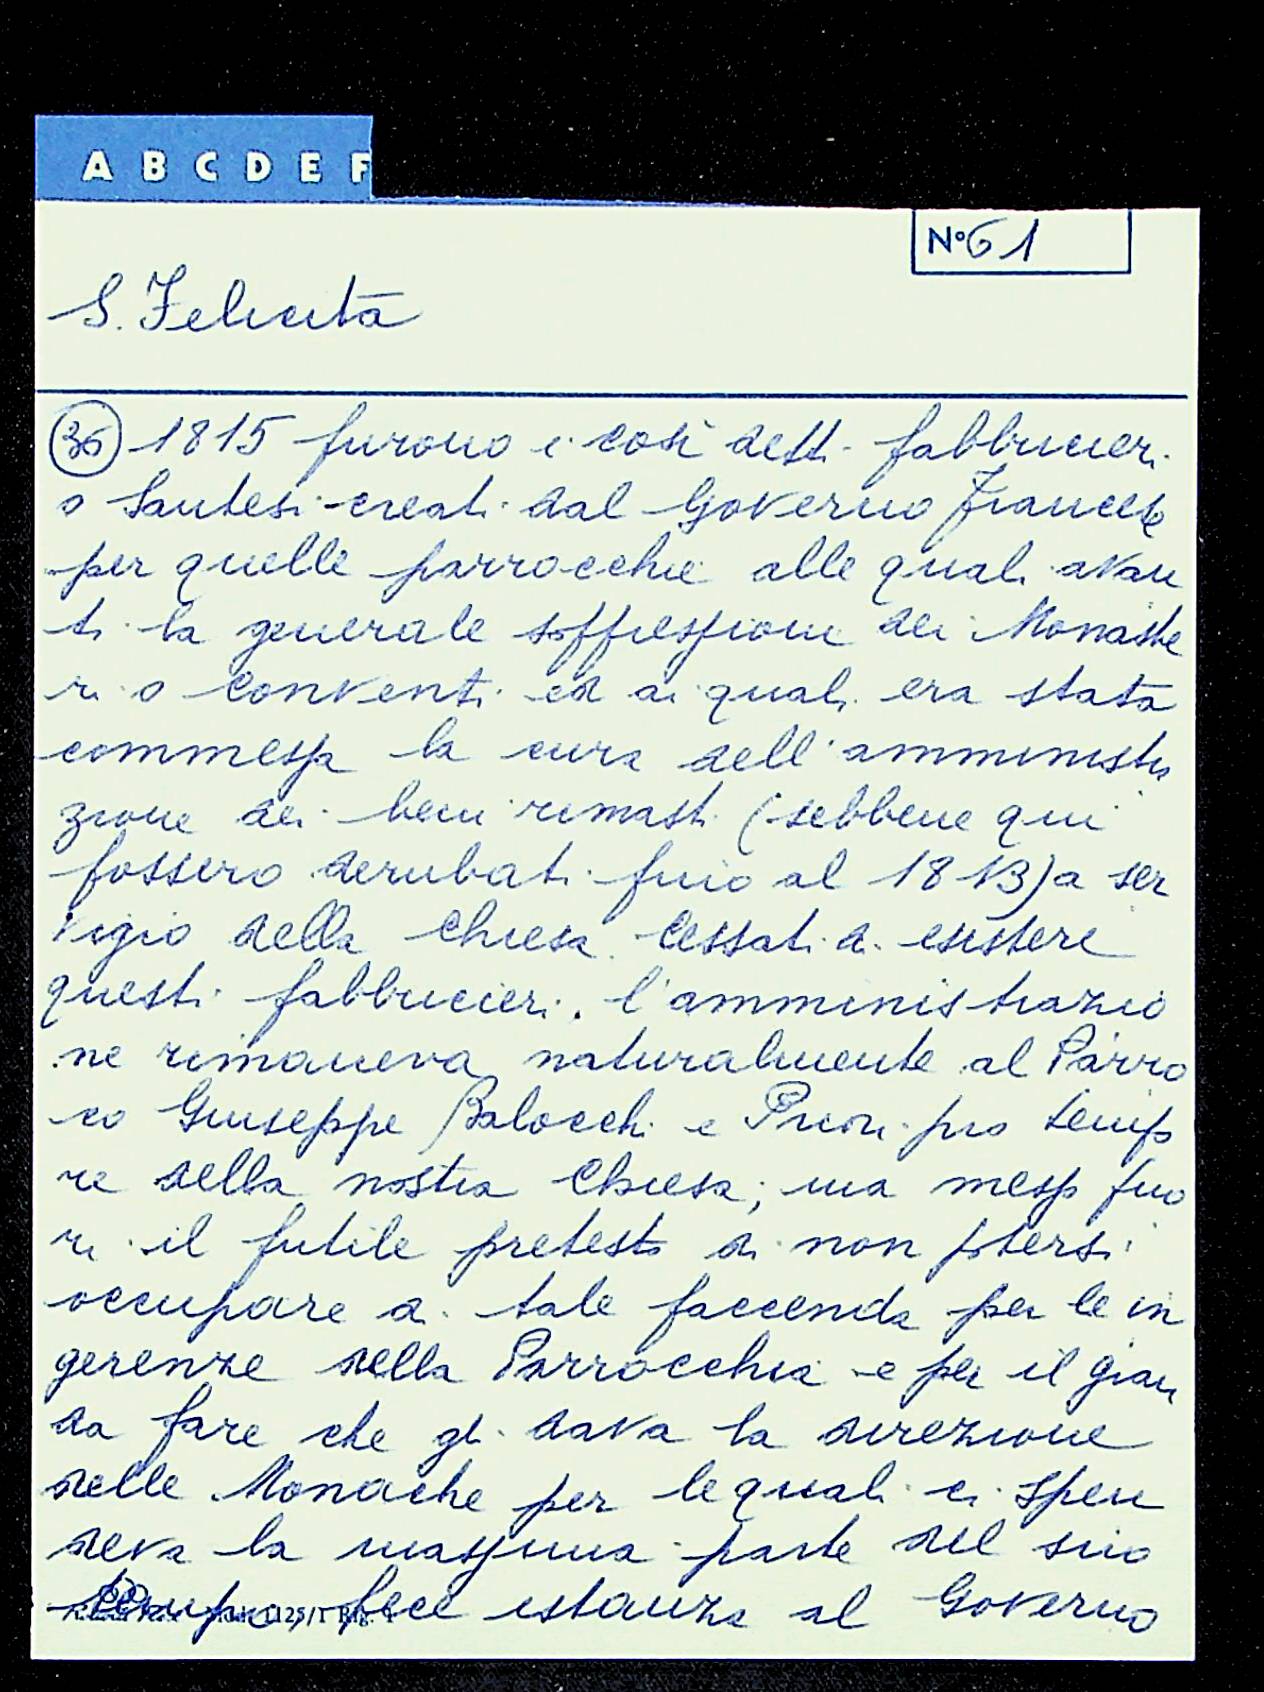 A B C D E F
N° 61
S. Felicità
36 1815 furono i così detti fabbricieri
o Santesi creati dal Governo Francese
per quelle parrocchie alle quali avan
ti la generale soffressione dei Monaste
ri o conventi ed ai quali era stata
commessa la cura dell'amministra
zione dei beni rimasti (sebbene qui
fossero derubati fino al 1813) a ser
vigio della Chiesa. Cessati di esistere
questi fabbricieri, l'amministrazio
ne rimaneva naturalmente al Parro
co Giuseppe Balocchi e Priori pro tempo
re della nostra Chiesa; ma messo fuo
ri il futile pretesto di non potersi
occupare di tale faccenda per le in
gerenze della Parrocchia e per il gran
da fare che gli dava la direzione
delle Monache per le quali ci spen
deva la massima parte del suo
tempo, fece istanza al Governo